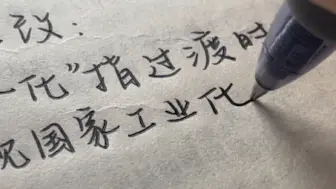 议：
化”指过渡时
现国家工业化